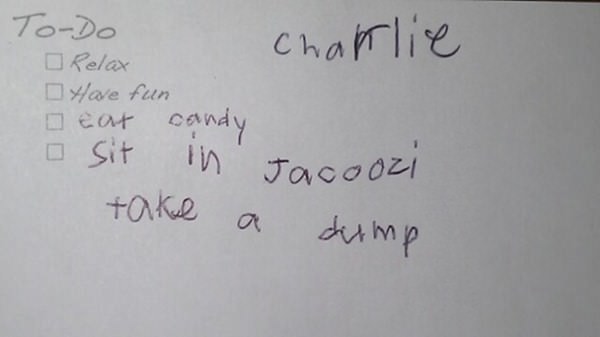 To-Do
charlie
Relax
Have fun
eat candy
sit in Jacoozi
take a dump